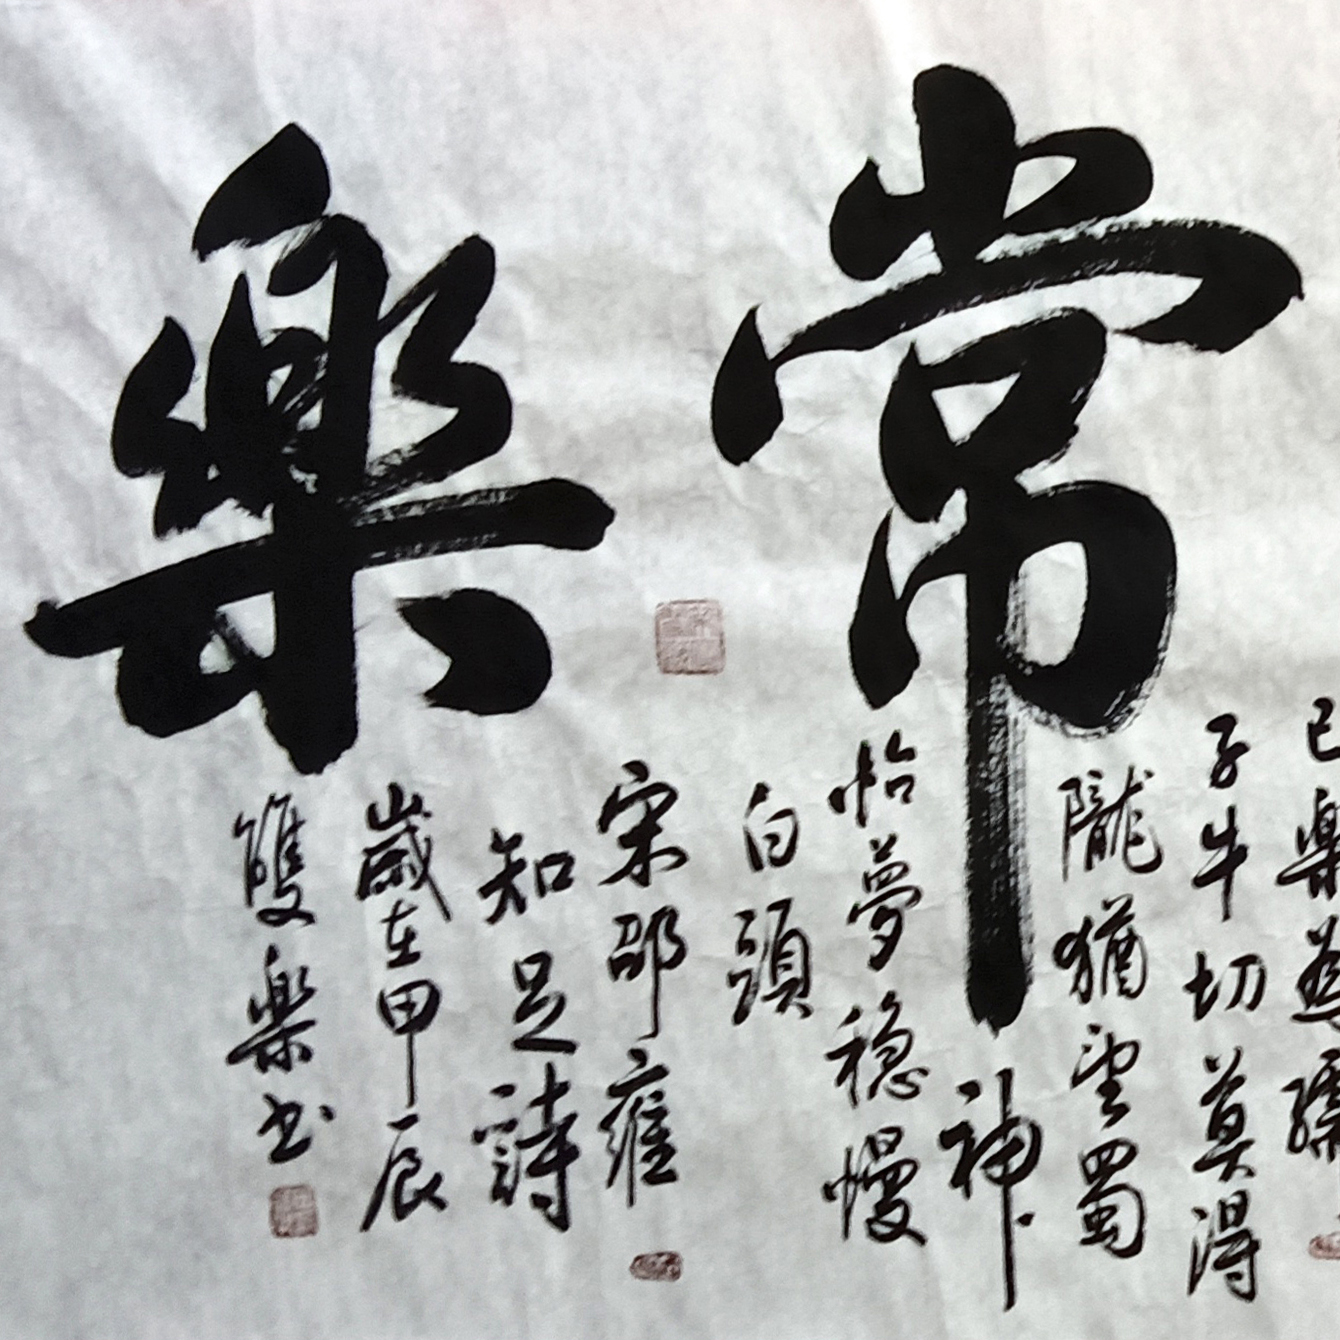 常樂
已樂為孺
子牛切莫得
隴猶望蜀
神
怡夢稳慢
白頭
宋邵雍
知足詩
歲在甲辰
雙樂书